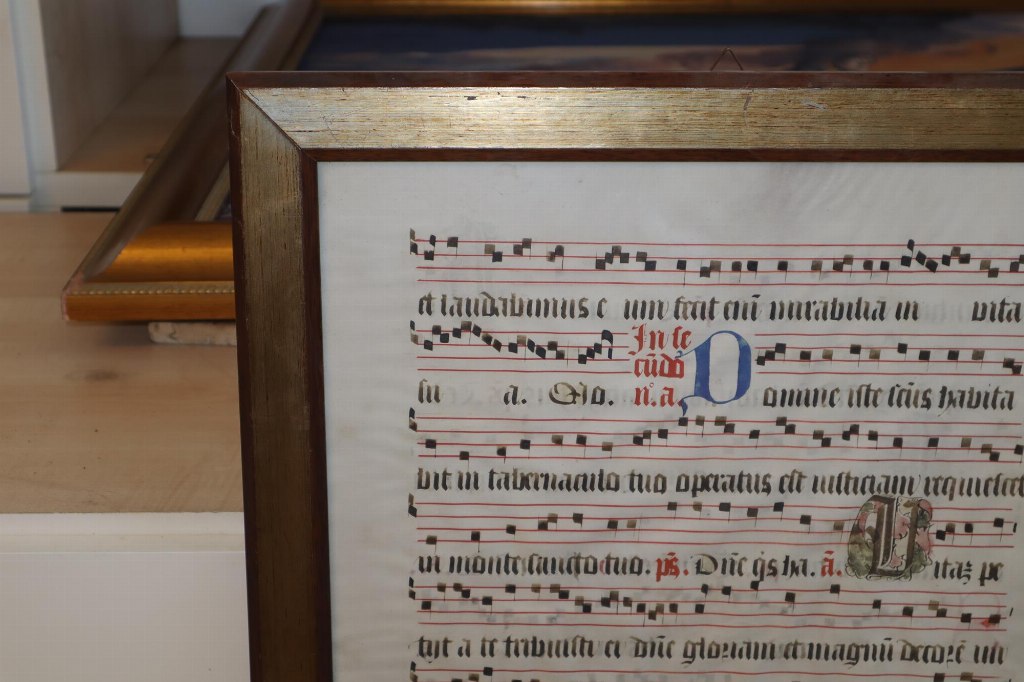 et laudabimus e um fecit enī mirabilia in vita
In se
cūdo
su a. Evo. n°. a. Domine iste scūs habita
bit in tabernaculo tuo operatus est iusticiam requiescet
in monte sancto tuo. ps̄. Dn̄e q̄s ha. ā. Uitaꝫ pe
tyt a te tribuisti ei dn̄e gloriam et magnū decorē